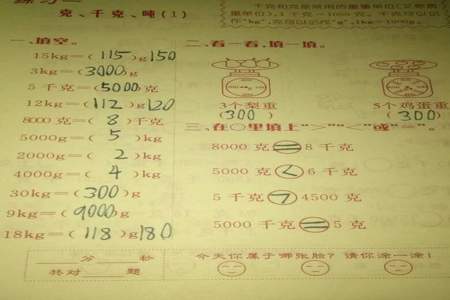 克、千克、吨(1)
一、填空。
15kg=( 115 )g150
3kg=(3000)g
5 千克=(5000)克
12kg=( 112 )g120
8000 克=( 8 )千克
5000g=( 5 )kg
2000g=( 2 )kg
4000g=( 4 )kg
30kg=( 300 )g
9kg=( 9000)g
18kg=( 118 )g180
分 秒
共对 题
二、看一看,填一填。
3个梨重
(300 )
5个鸡蛋重
( 300)
三、在○里填上">""<"或"="。
8000 克=8 千克
5000 克<6 千克
5 千克>4500 克
5000 千克=5 克
今天你属于哪张脸?请你涂一涂!